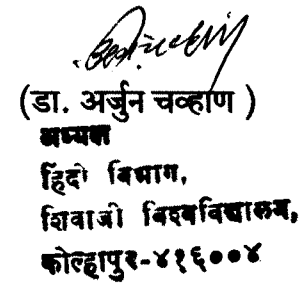 (डा. अर्जुन चव्हाण )
अध्यक्ष
हिंदी विभाग,
शिवाजी विश्वविद्यालय,
कोल्हापुर-४१६००४